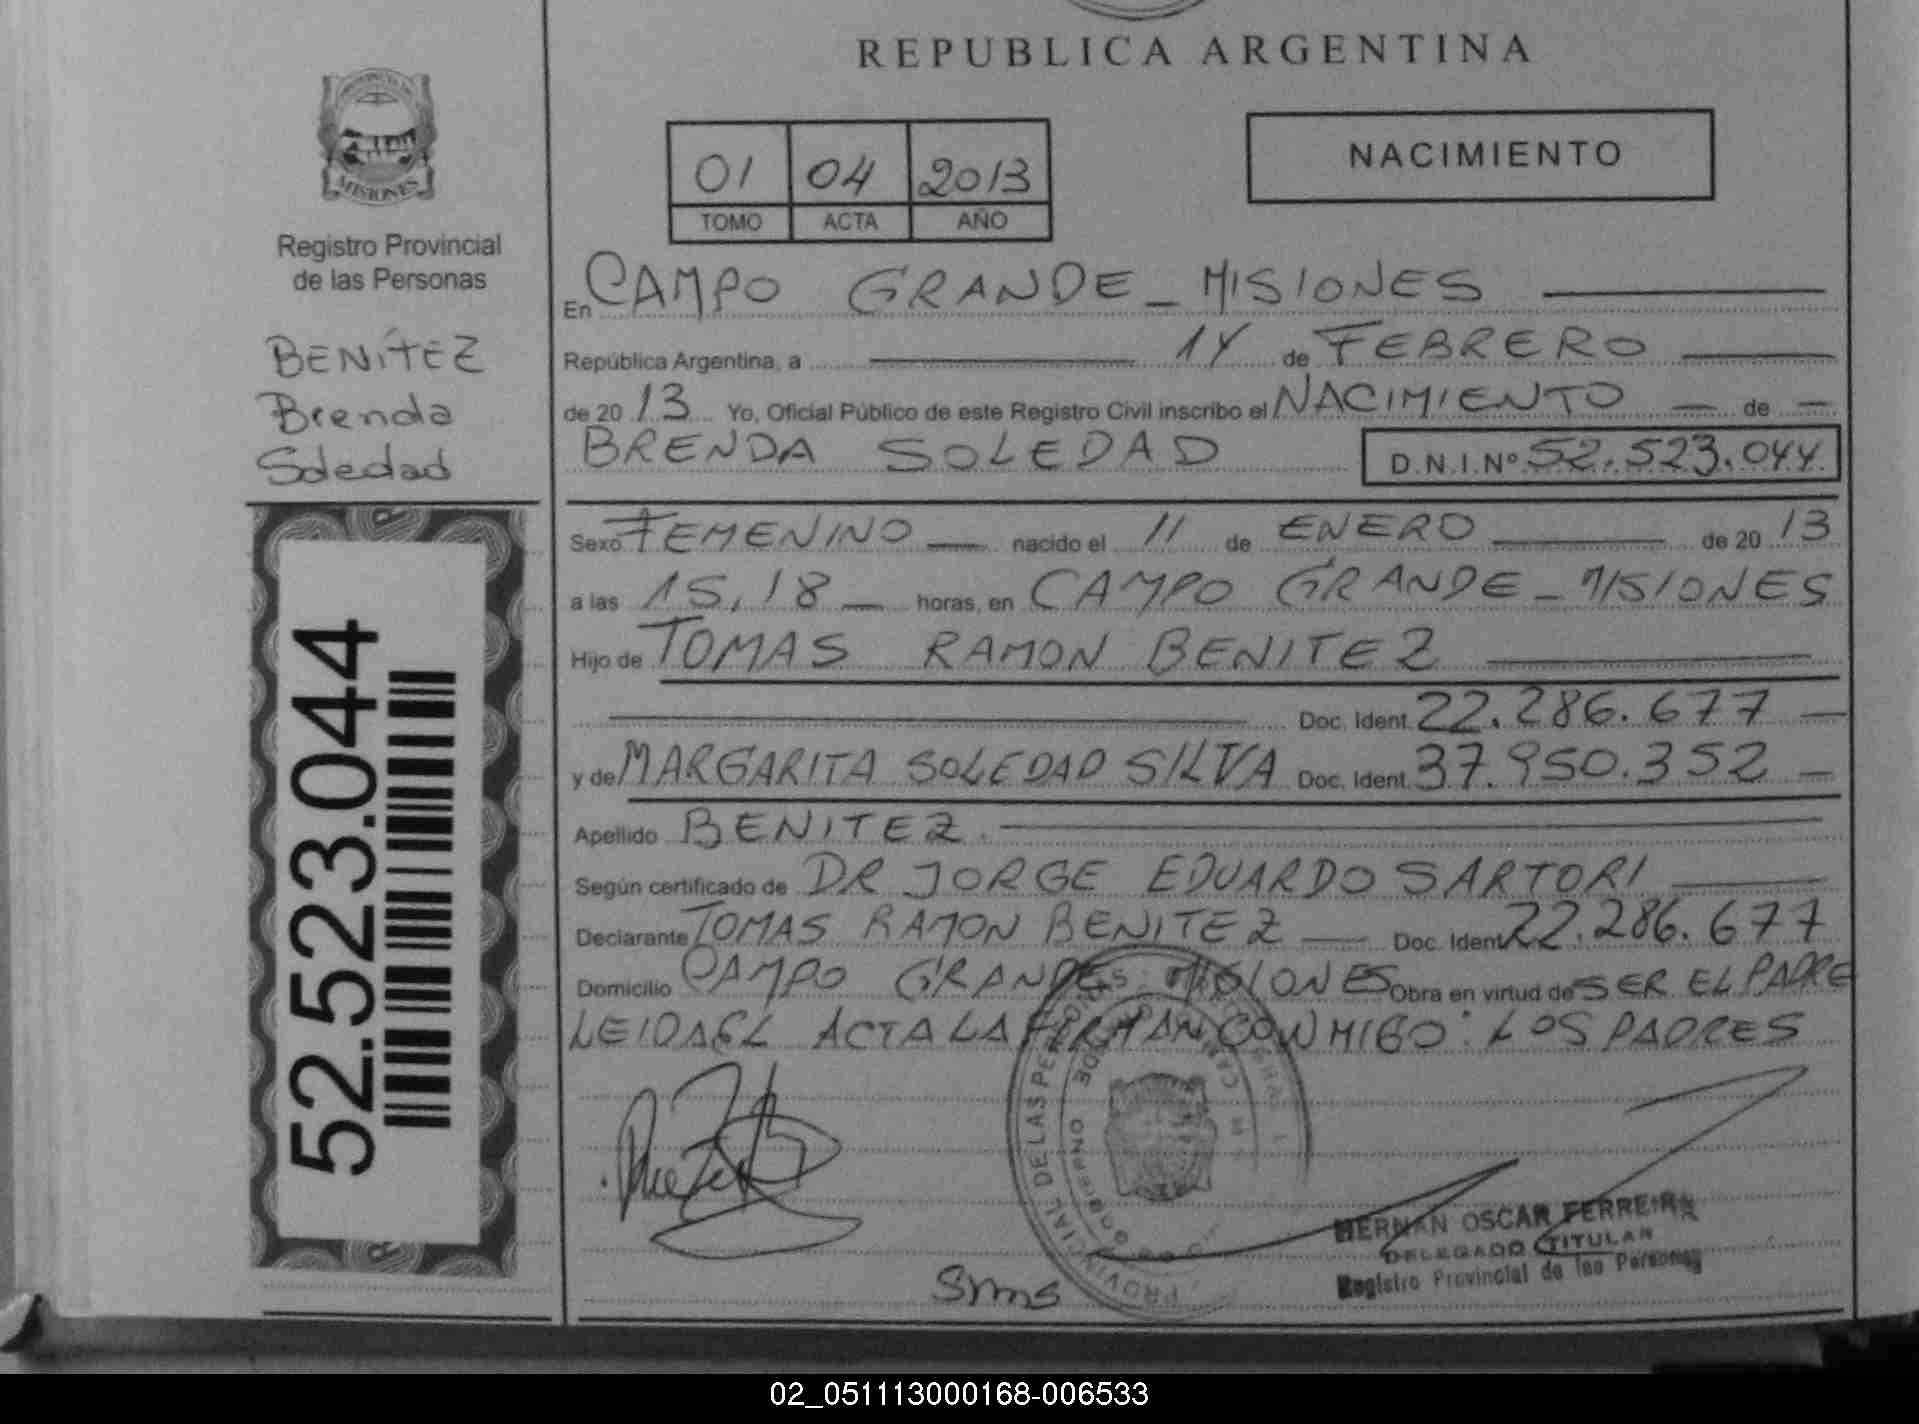 REPUBLICA ARGENTINA
MISIONES
Registro Provincial
de las Personas
BENÍTEZ
Brenda
Soledad
52.523.044
01 04 2013
TOMO ACTA AÑO
NACIMIENTO
En CAMPO GRANDE - MISIONES
República Argentina, a 14 de FEBRERO
de 20 13 Yo, Oficial Público de este Registro Civil inscribo el NACIMIENTO de
BRENDA SOLEDAD D.N.I.Nº 52.523.044
Sexo FEMENINO nacido el 11 de ENERO de 20 13
a las 15,18 horas, en CAMPO GRANDE - MISIONES
Hijo de TOMAS RAMON BENITEZ
Doc. Ident. 22.286.677
y de MARGARITA SOLEDAD SILVA Doc. Ident. 37.950.352
Apellido BENITEZ
Según certificado de DR JORGE EDUARDO SARTORI
Declarante TOMAS RAMON BENITEZ Doc. Ident 22.286.677
Domicilio CAMPO GRANDE MISIONES Obra en virtud de SER EL PADRE
LEIDA EL ACTA LA FIRMAN CONMIGO: LOS PADRES
PROVINCIAL DE LAS PERSONAS
GOBIERNO
HERNAN OSCAR FERREIRA
DELEGADO TITULAR
Registro Provincial de las Personas
SMS
02_051113000168-006533